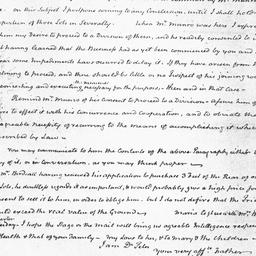 on this Subject I postpone coming to any Conclusion, until I shall
portion of those Lots on Severally. When Mr Munro was here I
him my desire to proceed to a Division of them, and he readily consented to
having learned that the Business had as yet been commenced by you and
fear some Impediments have occurred to delay it. If they have arisen from
to proceed, and there should be little or no prospect of his joining
concerting and executing necessary for the purpose, then and in that case
Remind Mr Munro of his consent to proceed to a Division Assure him of
to effect it with his Concurrence and Cooperation, and to obviate the
agreeable necessity of recurring to the means of accomplishing it
scribed by law
You may communicate to him the Contents of the above Paragraph, either by
of it, or in Conversation, as you may think proper
Mr having received his application to purchase 3 feet of the Rear of
Lots, he doubtless regards it as important, & would probably give a high price for
sent to sell it to him, in order to oblige him, but I do not desire that the
should exceed the real value of the Ground Maria to
I hope the Page or the Mail will bring us agreeable Intelligence
Health & that of your Family. My Love to her, & to Mary & the Children
I am Dr Peter
your very affte Father